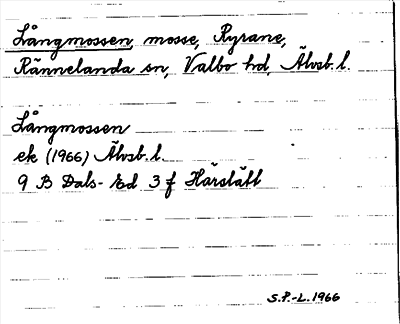 Långmossen, mosse, Ryrane,
Rännelanda sn, Valbo hd, Älvsb. l.
Långmossen
ek (1966) Älvsb. l.
9 B Dals-Ed 3 f Härslätt
S.P.-L. 1966